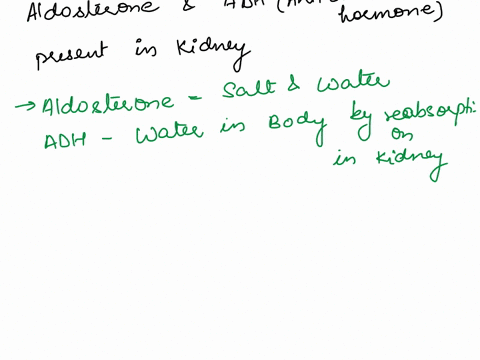 Aldosterone & ADH (
hormone)
present in kidney
→ Aldosterone - Salt & Water
ADH - Water in Body by reabsorpti
on
in kidney